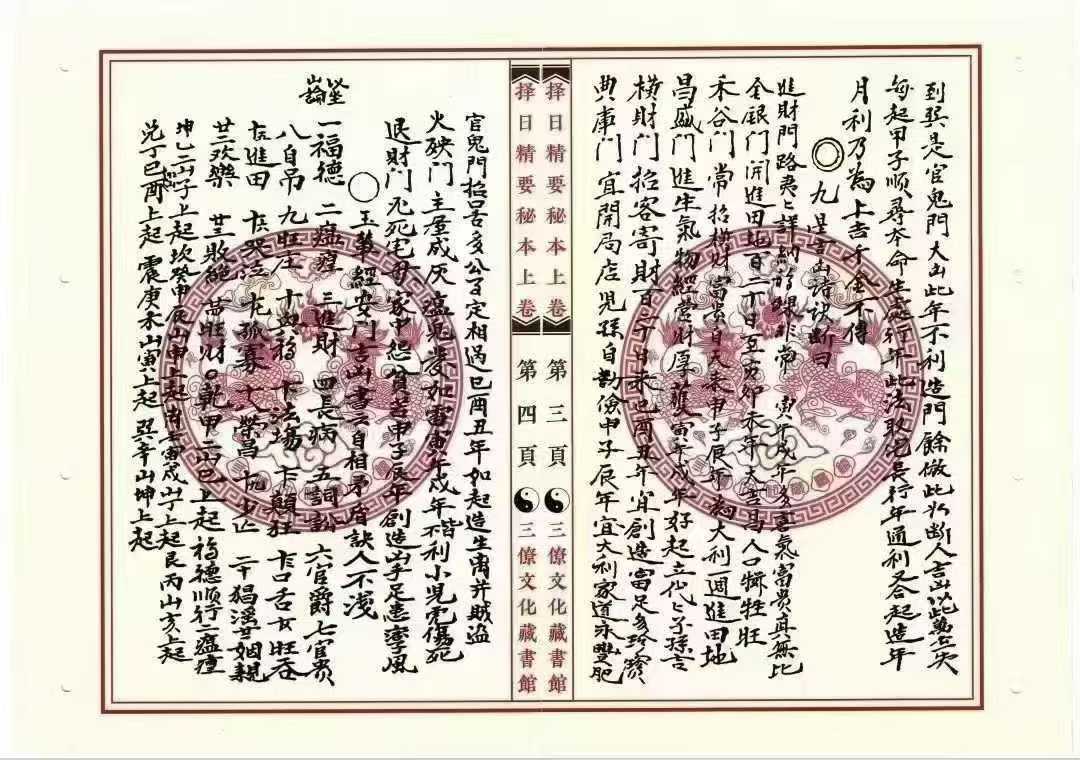 到巽是官鬼門大凶此年不利造門餘倣此均斷人吉凶萬無失
每起甲子順尋本命生處行年此法取宅長行年通利各起造年
月利乃為上吉千金不傳
◎九星吉凶詩訣斷曰
進財門路夷々詳納福祿非常 寅午戌年多喜氣富貴真無比
金銀门開進田地百二十日互亥卯未年大吉昌人口犧牲旺
禾谷門 常招横財富貴自天來申子辰年 大利一週進田地
昌盛门進生氣物經營財厚獲寅午戌年好起立代々子孫吉
橫財门招客寄財百二十日來巳酉丑年宜創造富足多珍寶
典庫门宜開局店兒孫自勤儉申子辰年宜大利家道永豐肥
择日精要秘本上卷 第三頁 三僚文化藏書館
择日精要秘本上卷 第四頁 三僚文化藏書館
官鬼門招口舌亥公事定相遇巳酉丑年如起造生离并賊盜
火殃门主屋成灰瘟鬼凌如雷寅午戌年不利小兒兇傷死
退財门兇死宅母家中怨貧苦申子辰年創造凶手足患瘋
〇玉華經安门吉凶書頁自相矛盾訣人不淺
坐山論
一福德 二瘟疸 三進財 四長病 五詞訟 六官爵 七官貴
八自吊 九旺庄 十興福 十一法場 十二顛狂 十三口舌 十四旺蚕
十五進田 十六哭泣 十七孤寡 十八榮昌 十九少亡 二十猖淫 廿一姻親
廿二欢樂 廿三敗絕 廿四旺財 〇乾甲二山巳上起福德順行二瘟疸
坤乙二山子上起坎癸申辰山申上起离壬寅戌山上起艮丙山亥上起
兌丁巳丑酉上起 震庚未山寅上起 巽辛山坤上起